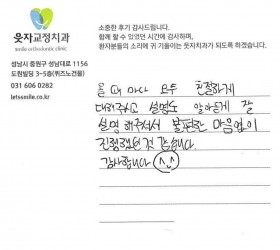 웃자교정치과
smile orthodontic clinic
성남시 중원구 성남대로 1156
도원빌딩 3-5층(퀴즈노건물)
031 606 0282
letssmile.co.kr
소중한 후기 감사드립니다.
함께 할 수 있었던 시간에 감사하며,
환자분들의 소리에 귀 기울이는 웃자치과가 되도록 하겠습니다.
올 때 마다 모두 친절하게
대해주고 설명도 알아듣게 잘
설명 해주셔서 불편한 마음없이
진행했던 것 같습니다.
감사합니다 ^^